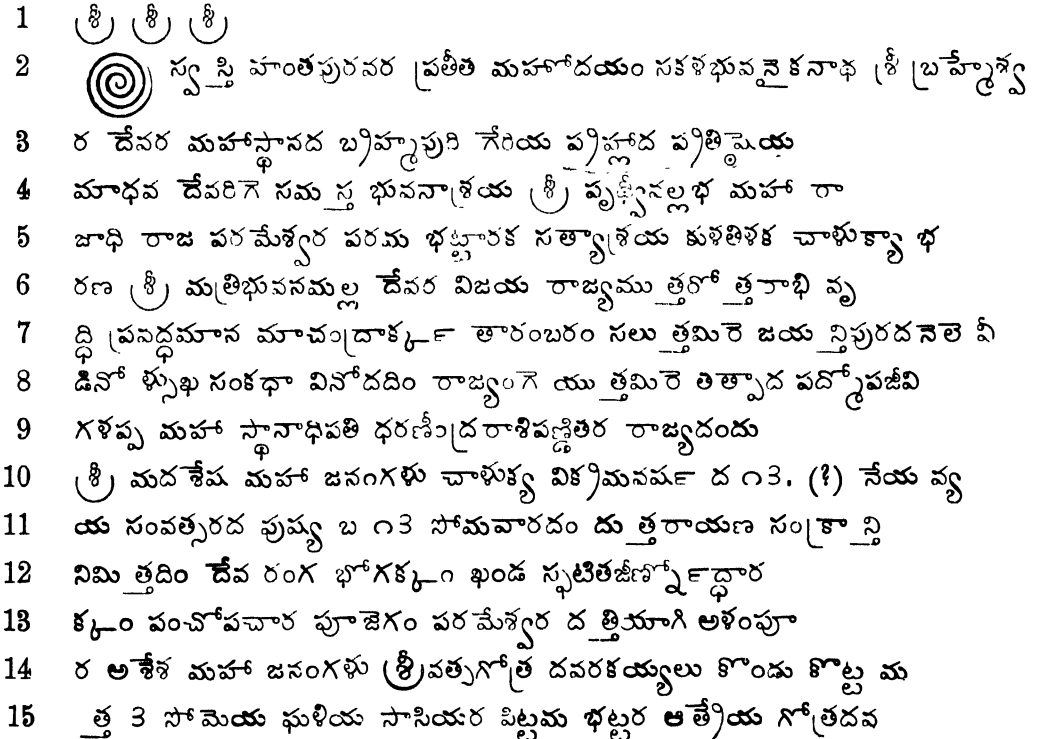 1 శ్రీ శ్రీ శ్రీ
2 స్వ స్తి హంతపురవర ప్రతీత మహోదయం సకళభువనైకనాథ శ్రీ బ్రహ్మేశ్వ
3 ర దేవర మహాస్థానద బ్రిహ్మపురి గేరియ ప్రిహ్లాద ప్రితిష్ఠెయ
4 మాధవ దేవరిగె సమ స్త భువనాశ్రయ శ్రీ పృథ్వీవల్లభ మహా రా
5 జాధి రాజ పరమేశ్వర పరమ భట్టారక సత్యాశ్రయ కుళతిళక చాళుక్యా భ
6 రణ శ్రీ మత్రిభువనమల్ల దేవర విజయ రాజ్యము త్తరో త్తరాభి వృ
7 ద్ధి ప్రవర్ద్ధమాన మాచంద్రార్క్క తారంబరం సలు త్తమిరె జయ న్తిపురదనెలె వీ
8 డినో ళ్సుఖ సంకధా వినోదదిం రాజ్యంగె యు త్తమిరె తిత్పాద పద్మోపజీవి
9 గళప్ప మహా స్థానాధిపతి ధరణీంద్రరాశిపణ్డితర రాజ్యదందు
10 శ్రీ మదశేష మహా జనంగళు చాళుక్య విక్రిమవర్ష ద ౧3. (?) నేయ వ్య
11 య సంవత్సరద పుష్య బ ౧3 సోమవారదం దు త్తరాయణ సంక్రా న్తి
12 నిమి త్తదిం దేవ రంగ భోగక్కం ఖండ స్ఫటితజీర్ణ్నోద్ధార
13 క్కం పంచోపచార పూజెగం పరమేశ్వర ద త్తియాగి అళంపూ
14 ర అశేశ మహా జనంగళు శ్రీవత్సగోత్ర దవరకయ్యలు కొండు కొట్ట మ
15 త్త 3 సోమెయ ఘళియ సాసియర పిట్టమ భట్టర ఆత్రేయ గోత్రదవ